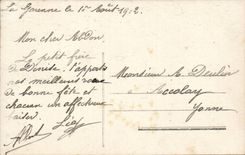 La Garenne le 1er Août 1912.
Mon cher Abdon
Le petit frère
de Denise t'apporte
nos meilleurs vœux
de bonne fête et
chacun un affectueux
baiser.
Monsieur A. Deulin
Accolay
Yonne